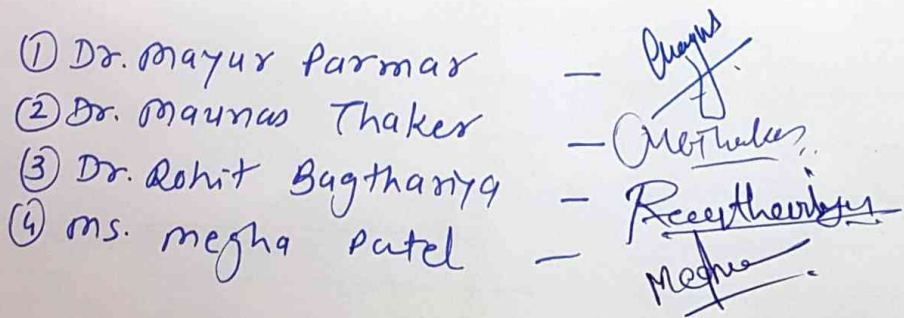 ① Dr. Mayur Parmar -
② Dr. Maunas Thaker - MGThaker
③ Dr. Rohit Bagthariya -
④ Ms. Megha Patel - Megha